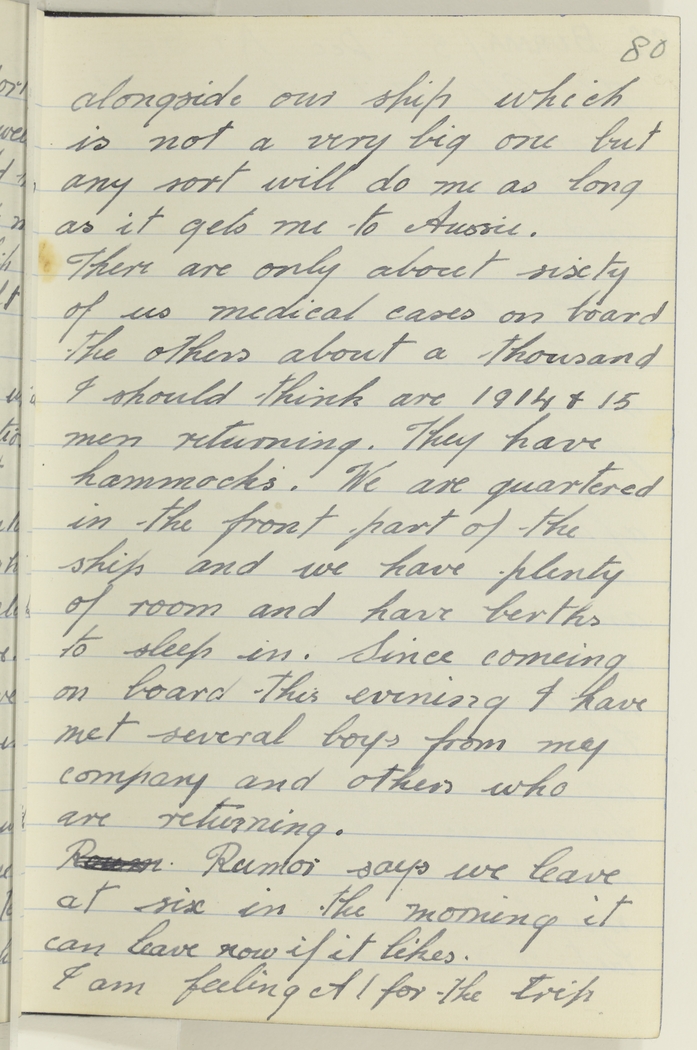 80
alongside our ship which
is not a very big one but
any sort will do me as long
as it gets me to Aussie.
There are only about sixty
of us medical cases on board
the others about a thousand
I should think are 1914 & 15
men returning. They have
hammocks. We are quartered
in the front part of the
ship and we have plenty
of room and have berths
to sleep in. Since comeing
on board this evening I have
met several boys from my
company and others who
are returning.
Rumor says we leave
at six in the morning it
can leave now if it likes.
I am feeling A1 for the trip